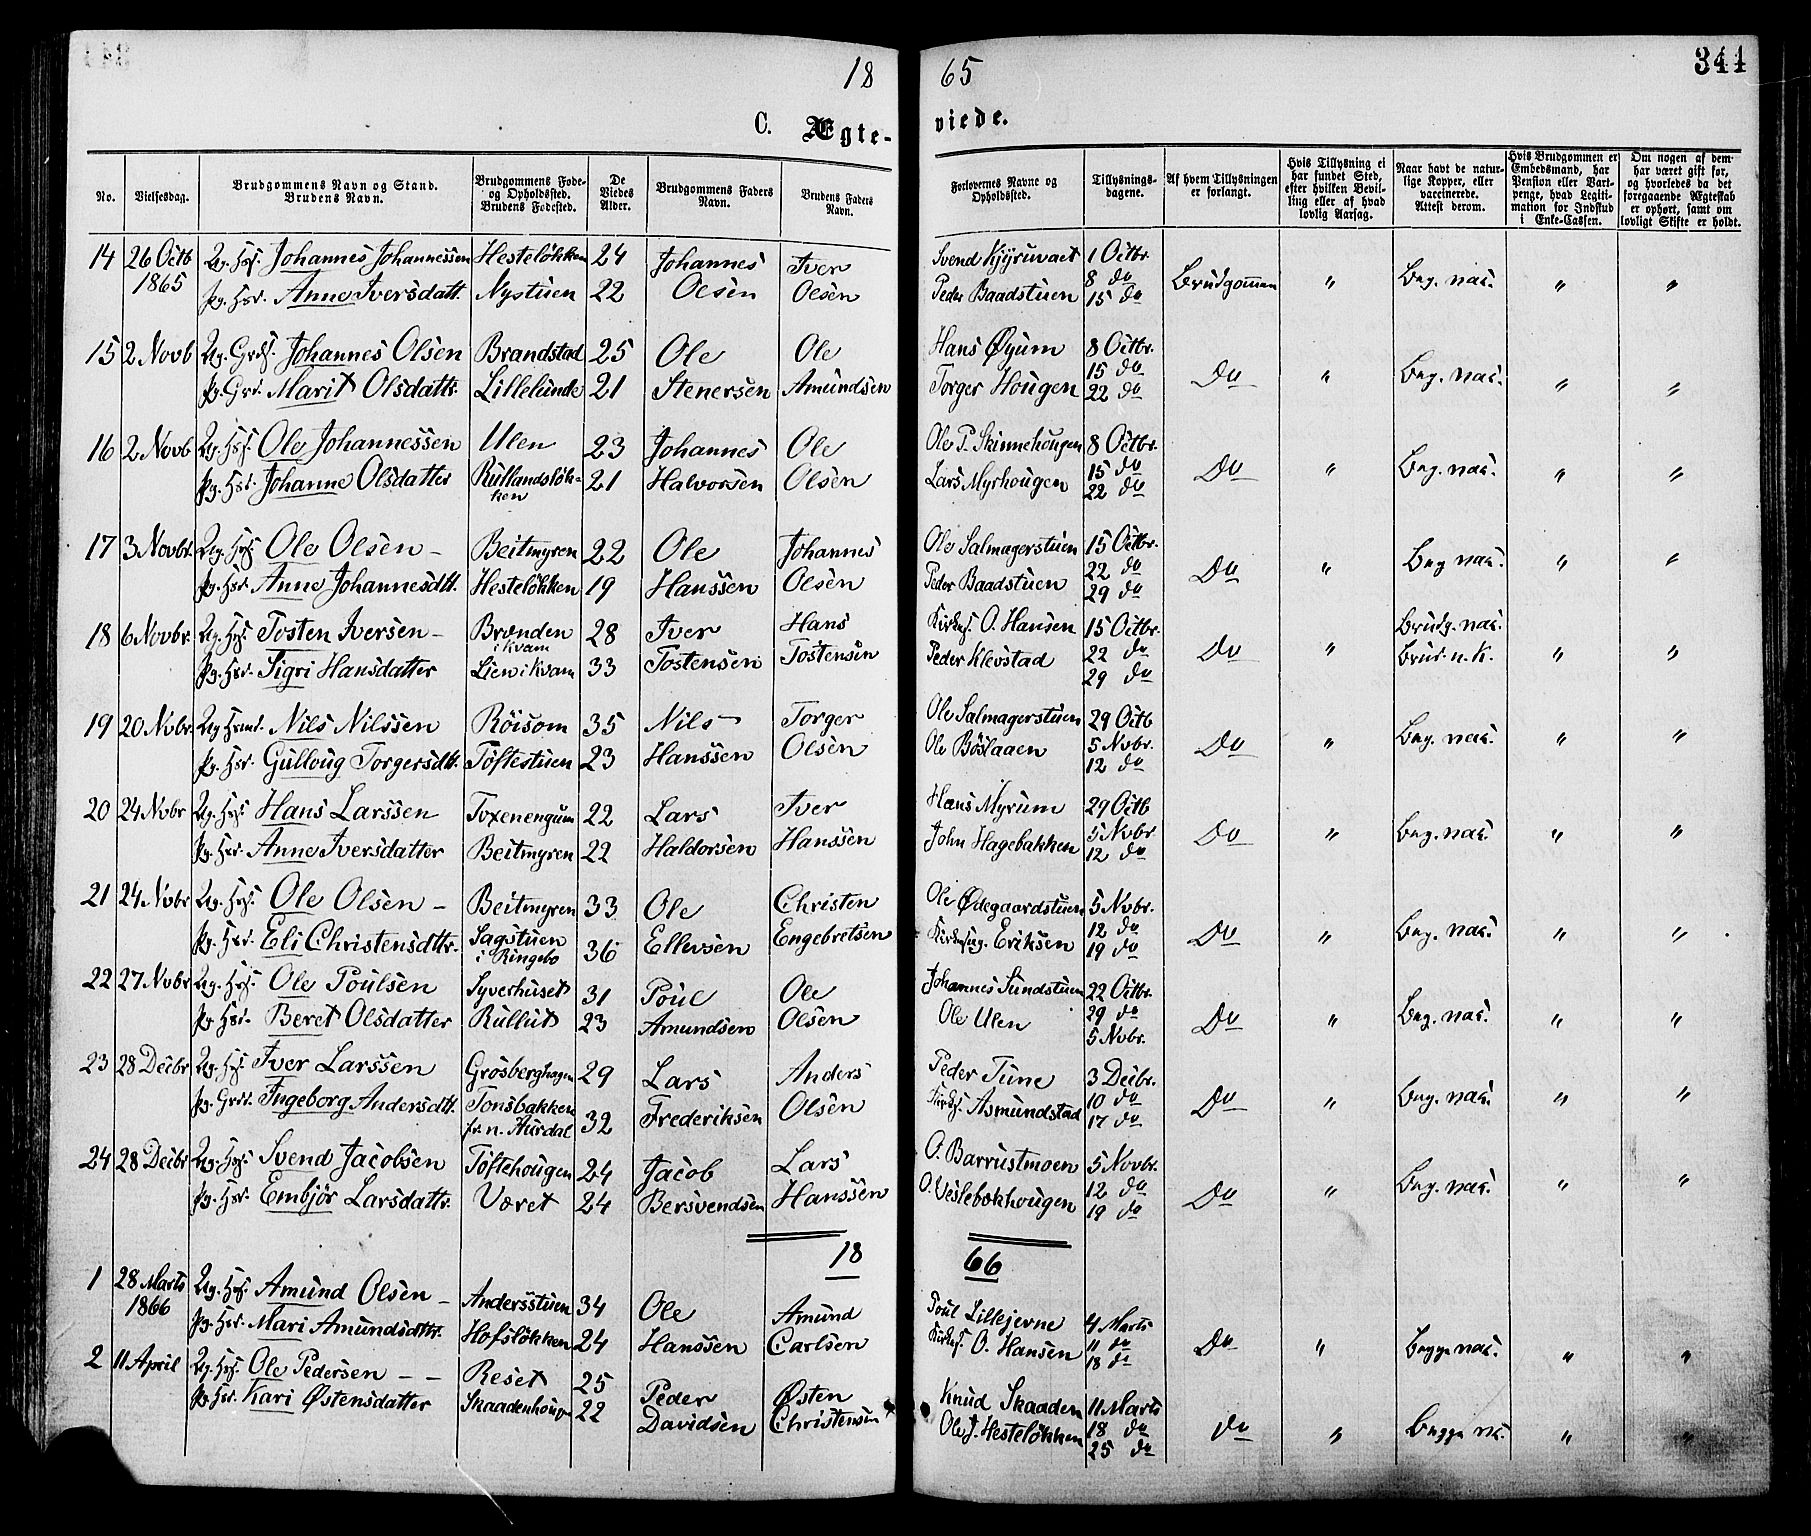 18 65 344
C. Ægte- viede.
No. Vielsesdag. Brudgommens Navn og Stand. Brudens Navn. Brudgommens Føde- og Opholdssted. Brudens Fødested. De Viedes Alder. Brudgommens Faders Navn. Brudens Faders Navn. Forlovernes Navne og Opholdssted. Tillysnings-dagene. Af hvem Tillysningen er forlangt. Hvis Tillysning ei har fundet Sted, efter hvilken Bevilling eller af hvad lovlig Aarsag. Naar havt de naturlige Kopper, eller vaccinerede. Attest derom. Hvis Brudgommen er Embedsmand, har Pension eller Vartpenge, hvad Legitimation for Indskud i Enke-Cassen. Om nogen af dem har været gift før, og hvorledes da det foregaaende Ægteskab er ophørt, samt om lovligt Skifte er holdt.
14 26 Octb Ug. Hsf. Johannes Johannessen Hesteløkken 24 Johannes Iver Svend Kjyruvaet 1 Octbr.
1865 Pg. Hsr. Anne Iversdatt. Nystuen 22 Olsen Olsen Peder Baadstuen 8 do 15 do Brudgommen " Beg. vac. " "
15 2 Novb Ug. Grdf. Johannes Olsen Brandstad 25 Ole Ole Hans Øyum 8 Octbr.
Pg. Grd. Marit Olsdattr. Lillelunde 21 Stenersen Amundsen Torger Hougen 15 do 22 do Do " Beg. vac. " "
16 2 Novb Ug. Hsf. Ole Johannessen Ulen 23 Johannes Ole Ole P. Skinnehougen 8 Octbr.
Pg. Hsr. Johanne Olsdatter Rullandsløkken 21 Halvorsen Olsen Lars Myrhougen 15 do 22 do Do " Beg. vac. " "
17 3 Novbr. Ug. Hsf. Ole Olsen - Beitmyren 22 Ole Johannes Ole Salmagerstuen 15 Octbr.
Pg. Hsr. Anne Johannesdtt. Hesteløkken 19 Hanssen Olsen Peder Baadstuen 22 do 29 do Do " Beg vac. " "
18 6 Novbr. Ug. Hsf. Tosten Iversen - Brænden i Kvam 28 Iver Hans Kirks. O. Hansen 15 Octbr. Brudg. vac.
Pg. Hsr. Sigri Hansdatter Lien i Kvam 33 Tostensen Tostensen Peder Klevstad 22 do 29 do Do " Brud. n. K. " "
19 20 Nvbr. Ug Nils Nilssen Röisom 35 Nils Torger Ole Salmagerstuen 29 Octb
Pg. Hsr. Gulloug Torgersdtt. Toftestuen 23 Hanssen Olsen Ole Böslaaen 5 Nvbr. 12 do Do " Beg. vac. " "
20 24 Nvbr Ug. Hsf. Hans Larssen Toxenengum 22 Lars Iver Hans Myrum 29 Octb
Pg. Hsr. Anne Iversdatter Beitmyren 22 Haldorsen Hanssen John Hagebakken 5 Nvbr 12 do Do " Beg. vac. " "
21 24 Nvbr Ug. Hsf. Ole Olsen - Beitmyren 33 Ole Christen Ole Ødegaardstuen 5 Nvbr.
Pg. Hsr. Eli Christensdttr. Sagstuen i Ringebo 36 Ellevsen Engebretsen Eriksen 12 do 19 do Do " Beg. vac. " "
22 27 Nvbr Ug. Hsf. Ole Poulsen Syverhuset 31 Poul Ole Johannes Sundstuen 22 Octbr.
Pg. Hsr. Beret Olsdatter Rullut 23 Amundsen Olsen Ole Ulen 29 do 5 Nvbr. Do " Beg. vac. " "
23 28 Decbr Ug. Hsf. Iver Larssen Grosberghagen 29 Lars Anders Peder Tune 3 Decbr.
Pg. Grdr. Ingeborg Andersdtt. Tonsbakken fr. n. Aurdal 32 Frederiksen Olsen Kirks. Asmundstad 10 do 17 do Do " Beg. vac. " "
24 28 Decbr Ug. Hsf. Svend Jacobsen Toftehougen 24 Jacob Lars O. Barrustmoen 5 Novbr.
Pg. Hsr. Embjör Larsdattr. Været 24 Bersvendsen Hanssen O. Veslebækhougen 12 do 19 do Do " Beg. vac. " "
18 66
1 28 Marts Ug. Hsf. Amund Olsen - Andersstuen 34 Ole Amund Poul Lillejevne 4 Marts
1866 Pg. Hsr. Mari Amundsdttr. Hofsløkken 24 Hanssen Carlsen Kirks. O. Hansen 11 do 18 do Do " Begge vac. " "
2 11 April Ug. Hsf. Ole Pedersen - - Reset 25 Peder Østen Knud Skaaden 11 Marts
Pg. Hsr. Kari Østensdatter Skaadenhougen 22 Davidsen Christensen Ole J. Hesteløkken 18 do 25 do Do " Begge vc. " "